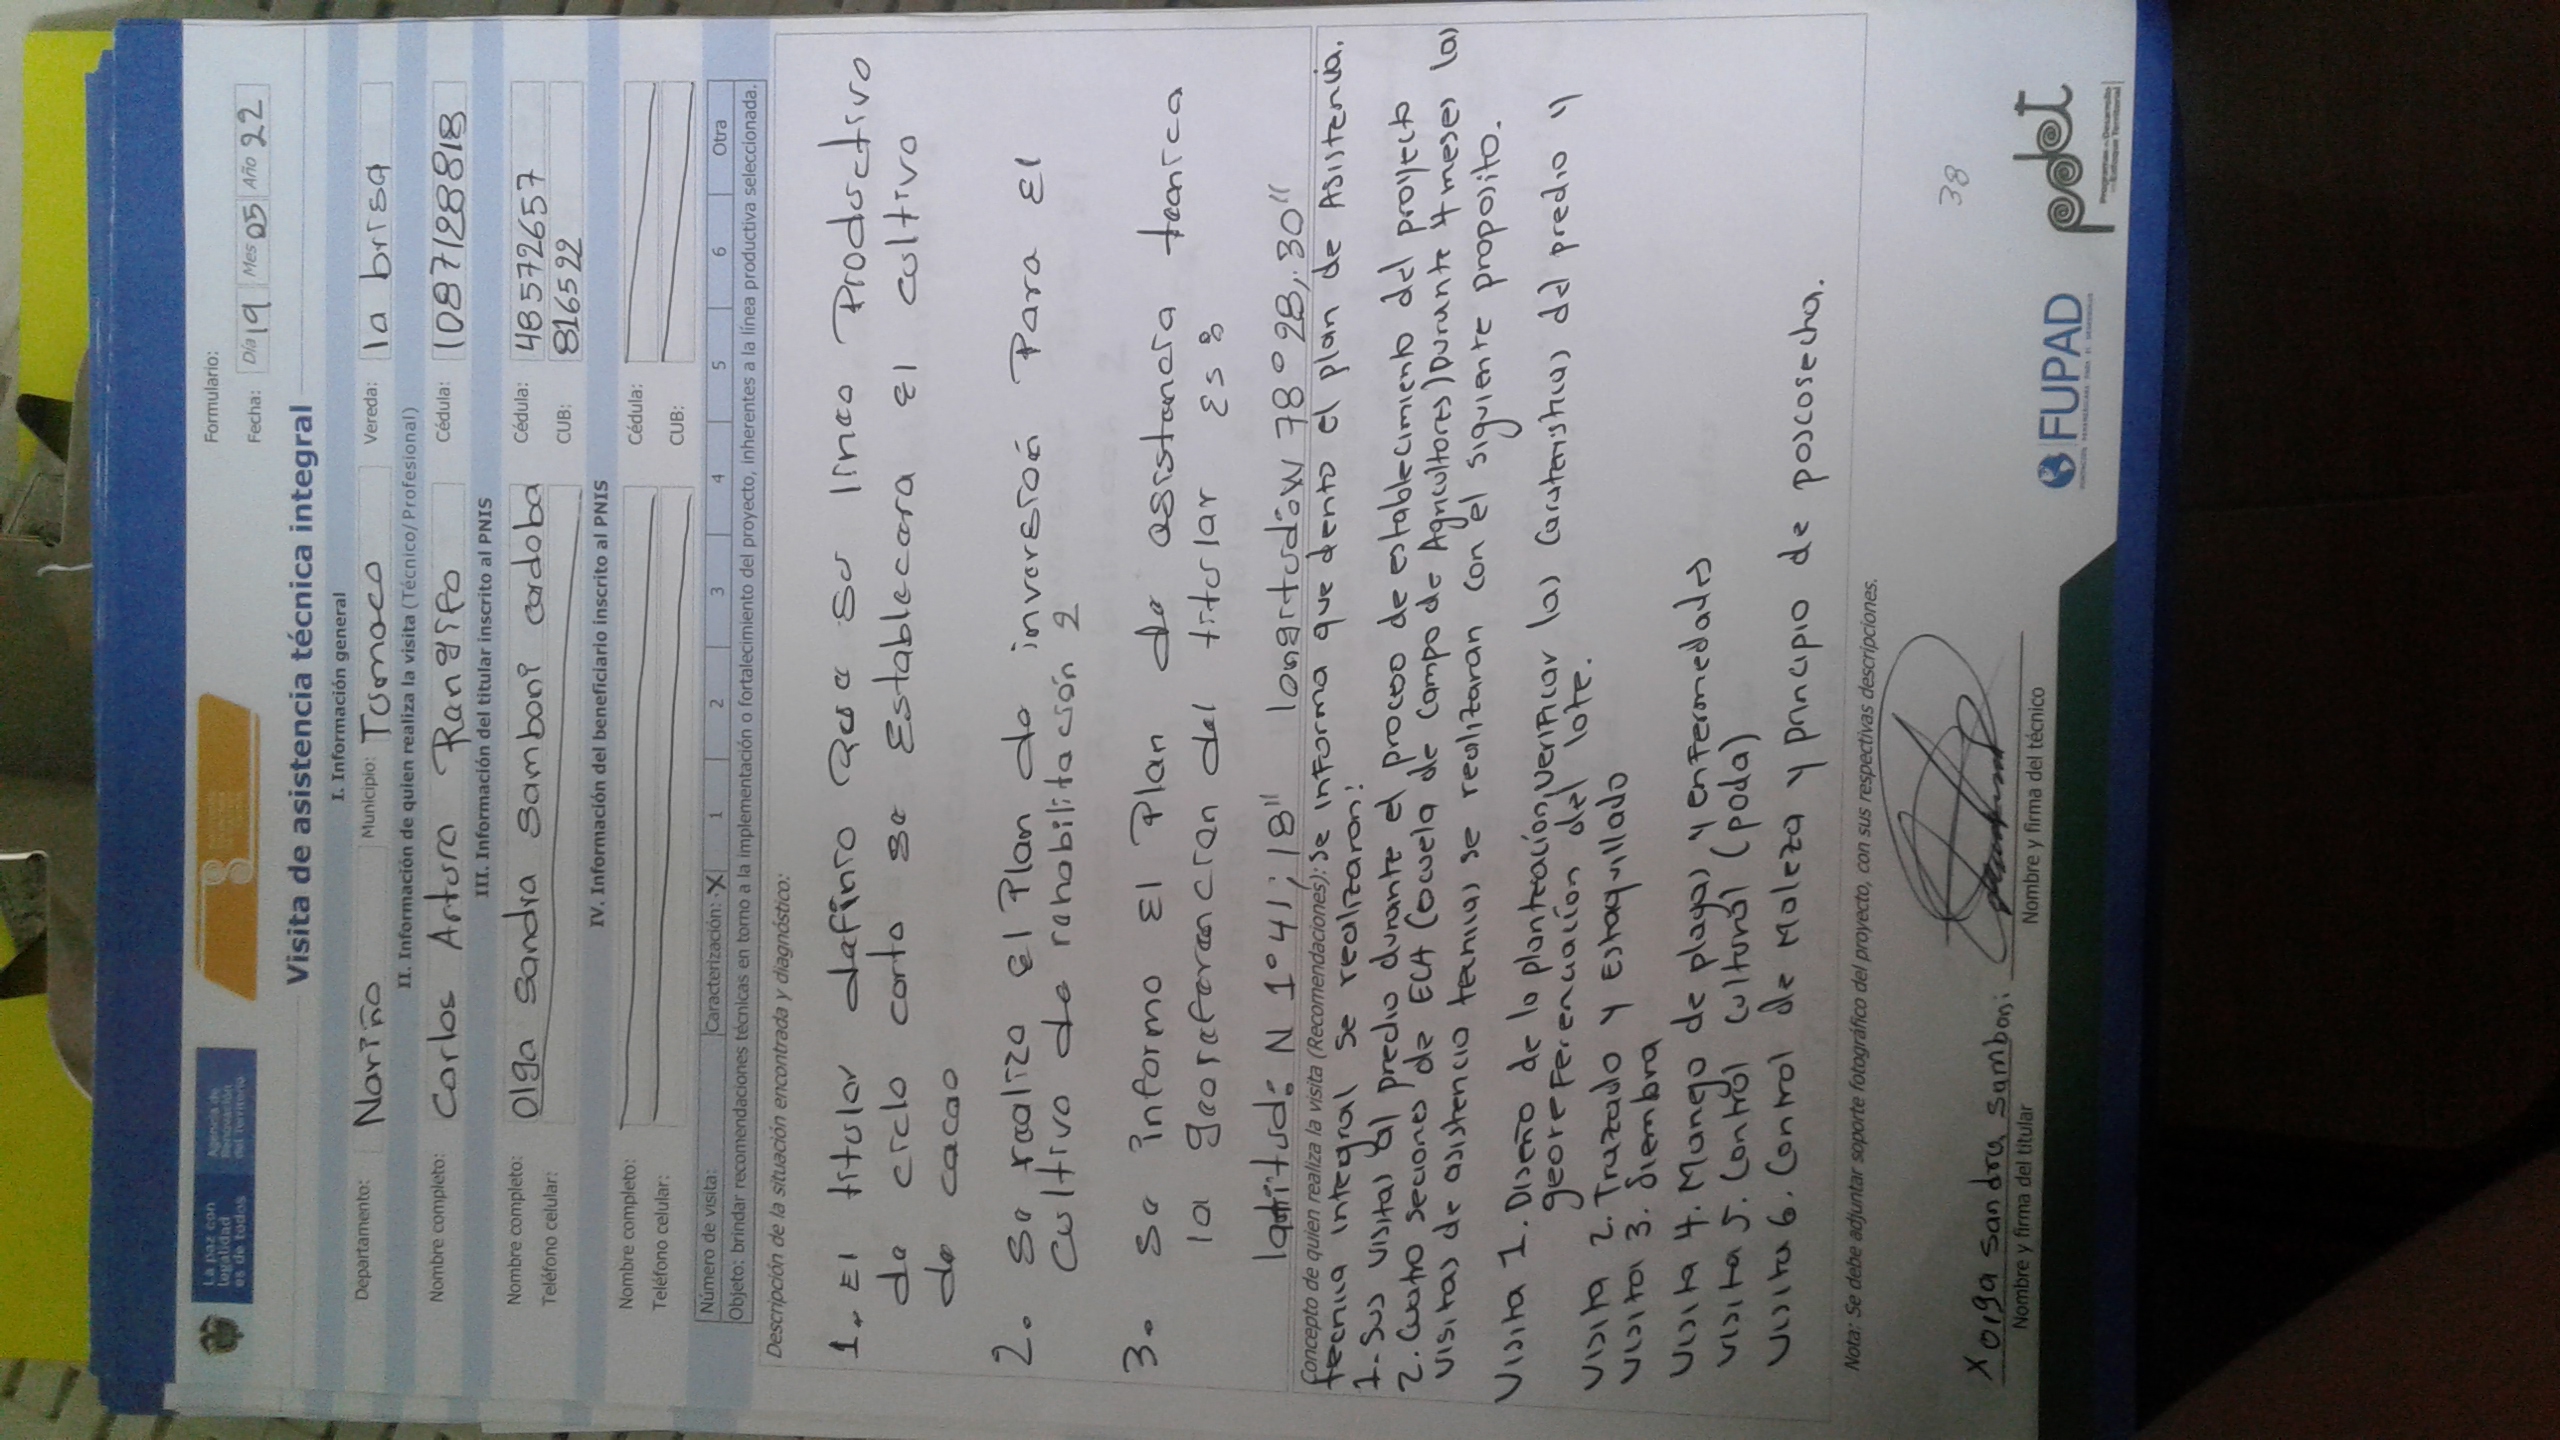 La paz con
legalidad
es de todos
Agencia de
Renovación
del Territorio
Formulario:
Fecha: Día 19 Mes 05 Año 22
Visita de asistencia técnica integral
I. Información general
Departamento: Nariño Municipio: Tumaco Vereda: la brisa
II. Información de quien realiza la visita (Técnico/Profesional)
Nombre completo: Carlos Arturo Rangifo Cédula: 1087128818
III. Información del titular inscrito al PNIS
Nombre completo: Olga Sandra Samboni cordoba Cédula: 48572657
Teléfono celular: CUB: 816522
IV. Información del beneficiario inscrito al PNIS
Nombre completo: Cédula:
Teléfono celular: CUB:
Número de visita: Caracterización: X 1 2 3 4 5 6 Otra
Objeto: brindar recomendaciones técnicas en torno a la implementación o fortalecimiento del proyecto, inherentes a la línea productiva seleccionada.
Descripción de la situación encontrada y diagnóstico:
1. El titular definio que su linea Productivo
de ciclo corto se Establecera El cultivo
de cacao
2. Se realizo El Plan de inversión Para El
Cultivo de rehabilitación 2
3. Se informo El Plan de asistencia tecnica
la georeferencian del titular Es:
latitud: N 1° 41; 18" longitud: W 78° 28,.30"
Concepto de quien realiza la visita (Recomendaciones): se informa que dento el plan de Asistenia.
tecnica integral se realizaran:
1- Sus visitas al predio durante el proceso de establecimiento del proyecto
2. Cuatro seciones de ECA (escuela de campo de Agricultores) Durante 4 meses las
visitas de asistencia tecnicas se realizaran con el siguiente proposito.
Visita 1. Diseño de la planteación, Verificar las Caracteristicas del predio y
georeferenciación del lote.
Visita 2. Trazado y Estaquillado
Visita 3. Siembra
Visita 4. Manejo de plagas y enfermedades
Visita 5. Control cultural (poda)
Visita 6. Control de Maleza y principio de poscosecha.
Nota: Se debe adjuntar soporte fotográfico del proyecto, con sus respectivas descripciones.
38
X olga sandra samboni
Nombre y firma del titular Nombre y firma del técnico
FUPAD
pdet
Programas de Desarrollo
con Enfoque Territorial